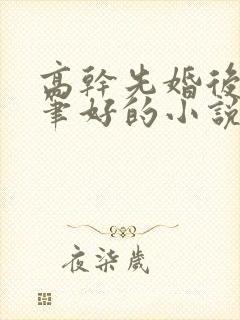 高幹先婚後
筆好的小說
夜柒歲